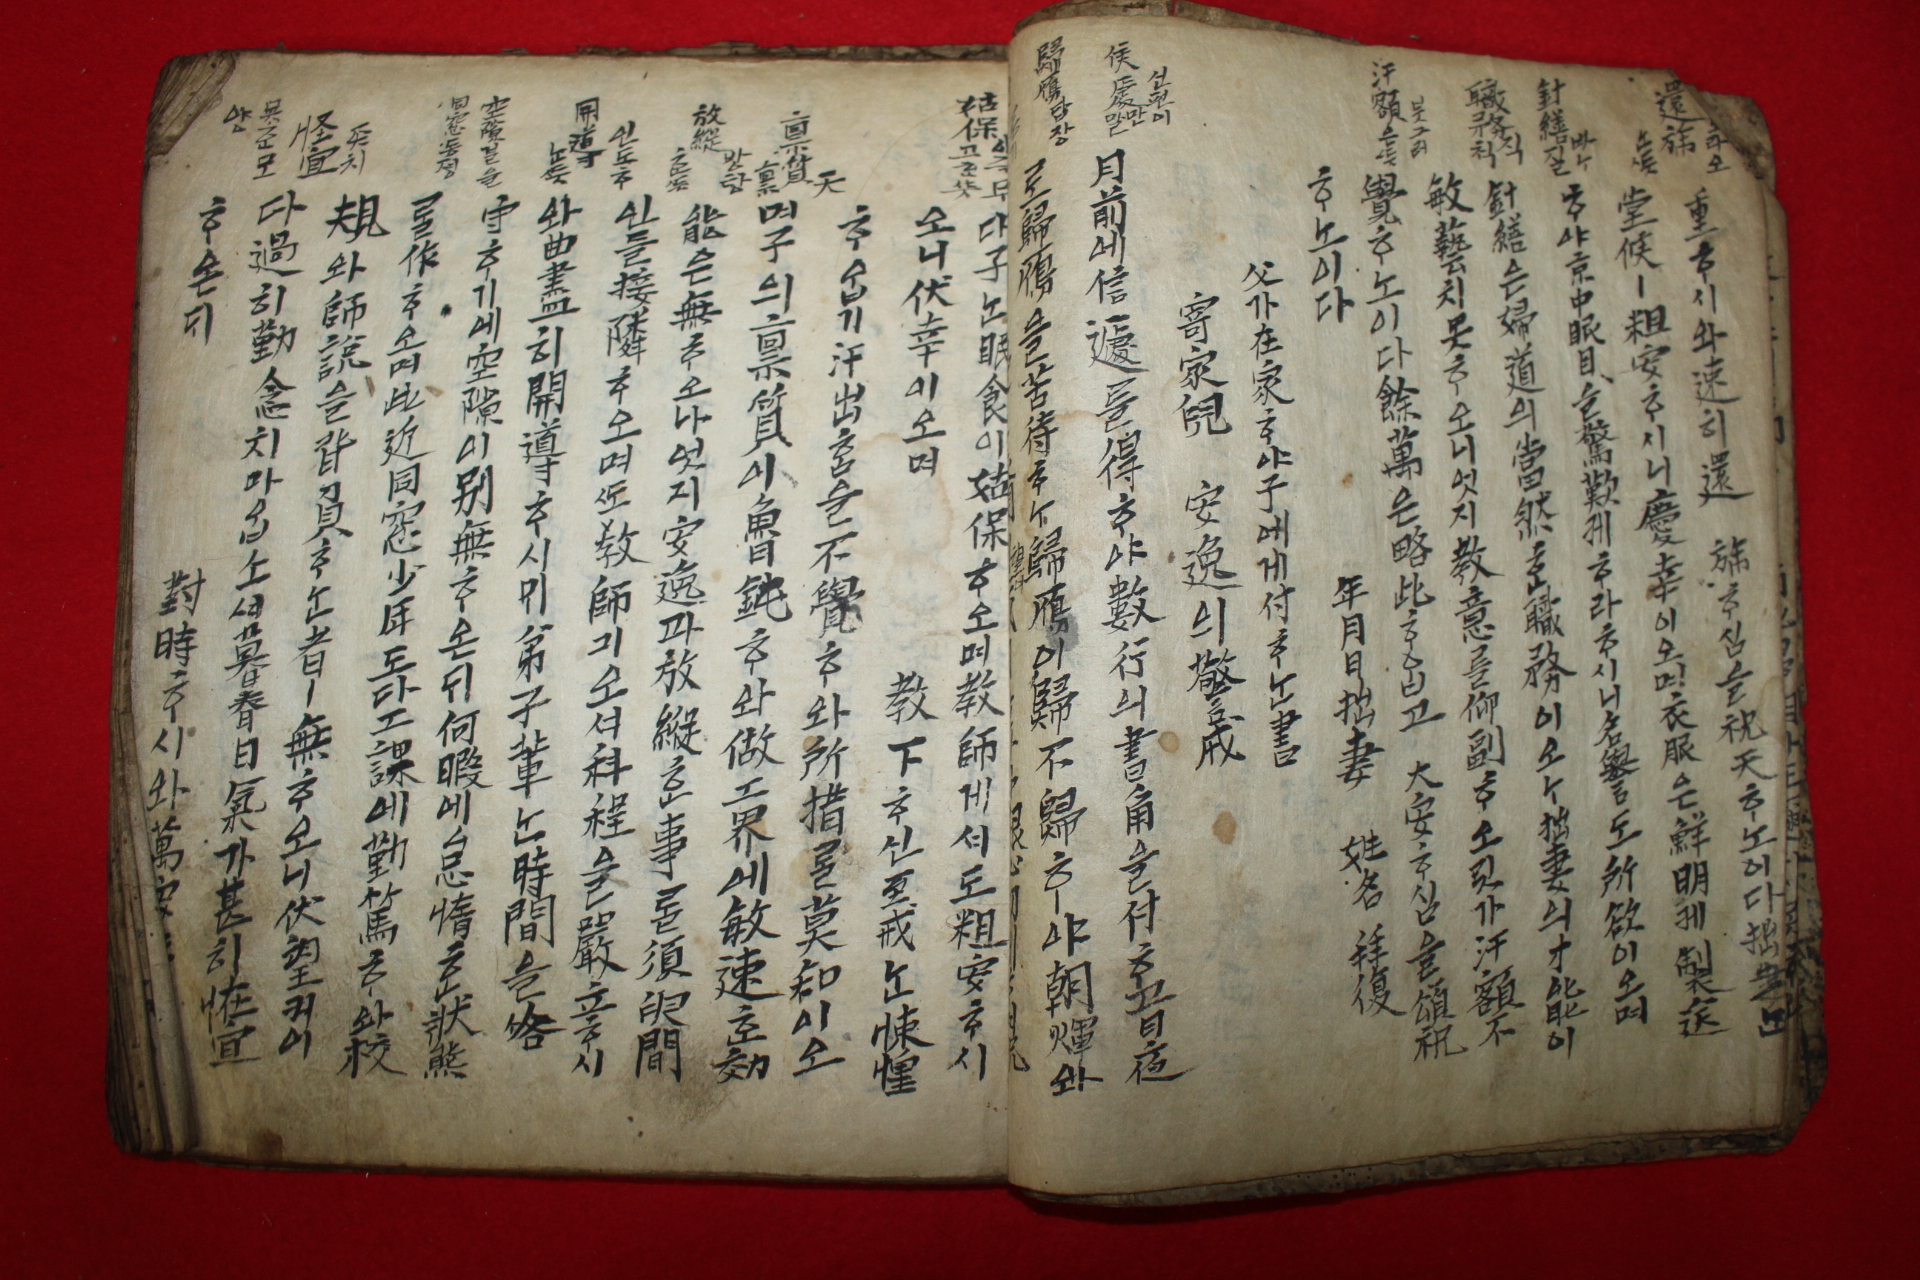 重ᄒᆞ시와速히還
旆ᄒᆞ심을祝天ᄒᆞ노이다拙妻ᄂᆞᆫ
堂候ㅣ粗安ᄒᆞ시니慶幸이오며衣服은鮮明케製送
ᄒᆞ야京中眼目을驚歎케ᄒᆞ라ᄒᆞ시니名譽도所欲이오며
針繕은婦道의當然ᄒᆞᆫ職務이오ᄂᆞ拙妻의才能이
敏藝치못ᄒᆞ오니엇지敎意를仰副ᄒᆞ오릿가汗額不
覺ᄒᆞ노이다餘萬은略此ᄒᆞᄋᆞᆸ고 大安ᄒᆞ심을頌祝
ᄒᆞ노이다
年月日拙妻 姓名 拜復
父가在家ᄒᆞ야子에게付ᄒᆞᄂᆞᆫ書
寄家兒 安逸의警戒
月前에信遞를得ᄒᆞ야數行의書角을付ᄒᆞ고日夜
로歸鴈을苦待ᄒᆞᄂᆞ歸鴈이歸不歸ᄒᆞ야朝煇와
다子ᄂᆞᆫ眠食이姑保ᄒᆞ오며敎師게셔도粗安ᄒᆞ시
오니伏幸이오며
敎下ᄒᆞ신至戒ᄂᆞᆫ悚惶
ᄒᆞᄋᆞᆸ기汗出홈을不覺ᄒᆞ와所措를莫知이오
며子의稟質이魯鈍ᄒᆞ와做工界에敏速ᄒᆞᆫ効
能은無ᄒᆞ오나엇지安逸과放縱ᄒᆞᆫ事를須臾間
인들接隣ᄒᆞ오며또敎師기오셔科程을嚴立ᄒᆞ시
와曲盡히開導ᄒᆞ시ᄆᆡ弟子輩ᄂᆞᆫ時間을恪
守ᄒᆞ기에空隙이別無ᄒᆞ온ᄃᆡ何暇에怠惰ᄒᆞᆫ狀態
를作ᄒᆞ오며此近同窓少年도다工課에勤篤ᄒᆞ와校
規와師說을背負ᄒᆞᄂᆞᆫ者ㅣ無ᄒᆞ오니伏望커이
다過히勤念치마ᄋᆞᆸ소셔暮春日氣가甚히怪宜
ᄒᆞ온ᄃᆡ
對時ᄒᆞ시와萬安
還旆
針繕질
바ᄂᆞ
職務직척
汗額
歸鴈답장
稟質
放縱
방탕
開導
인도ᄒᆞ
空隙
同窓동졉
怪宜